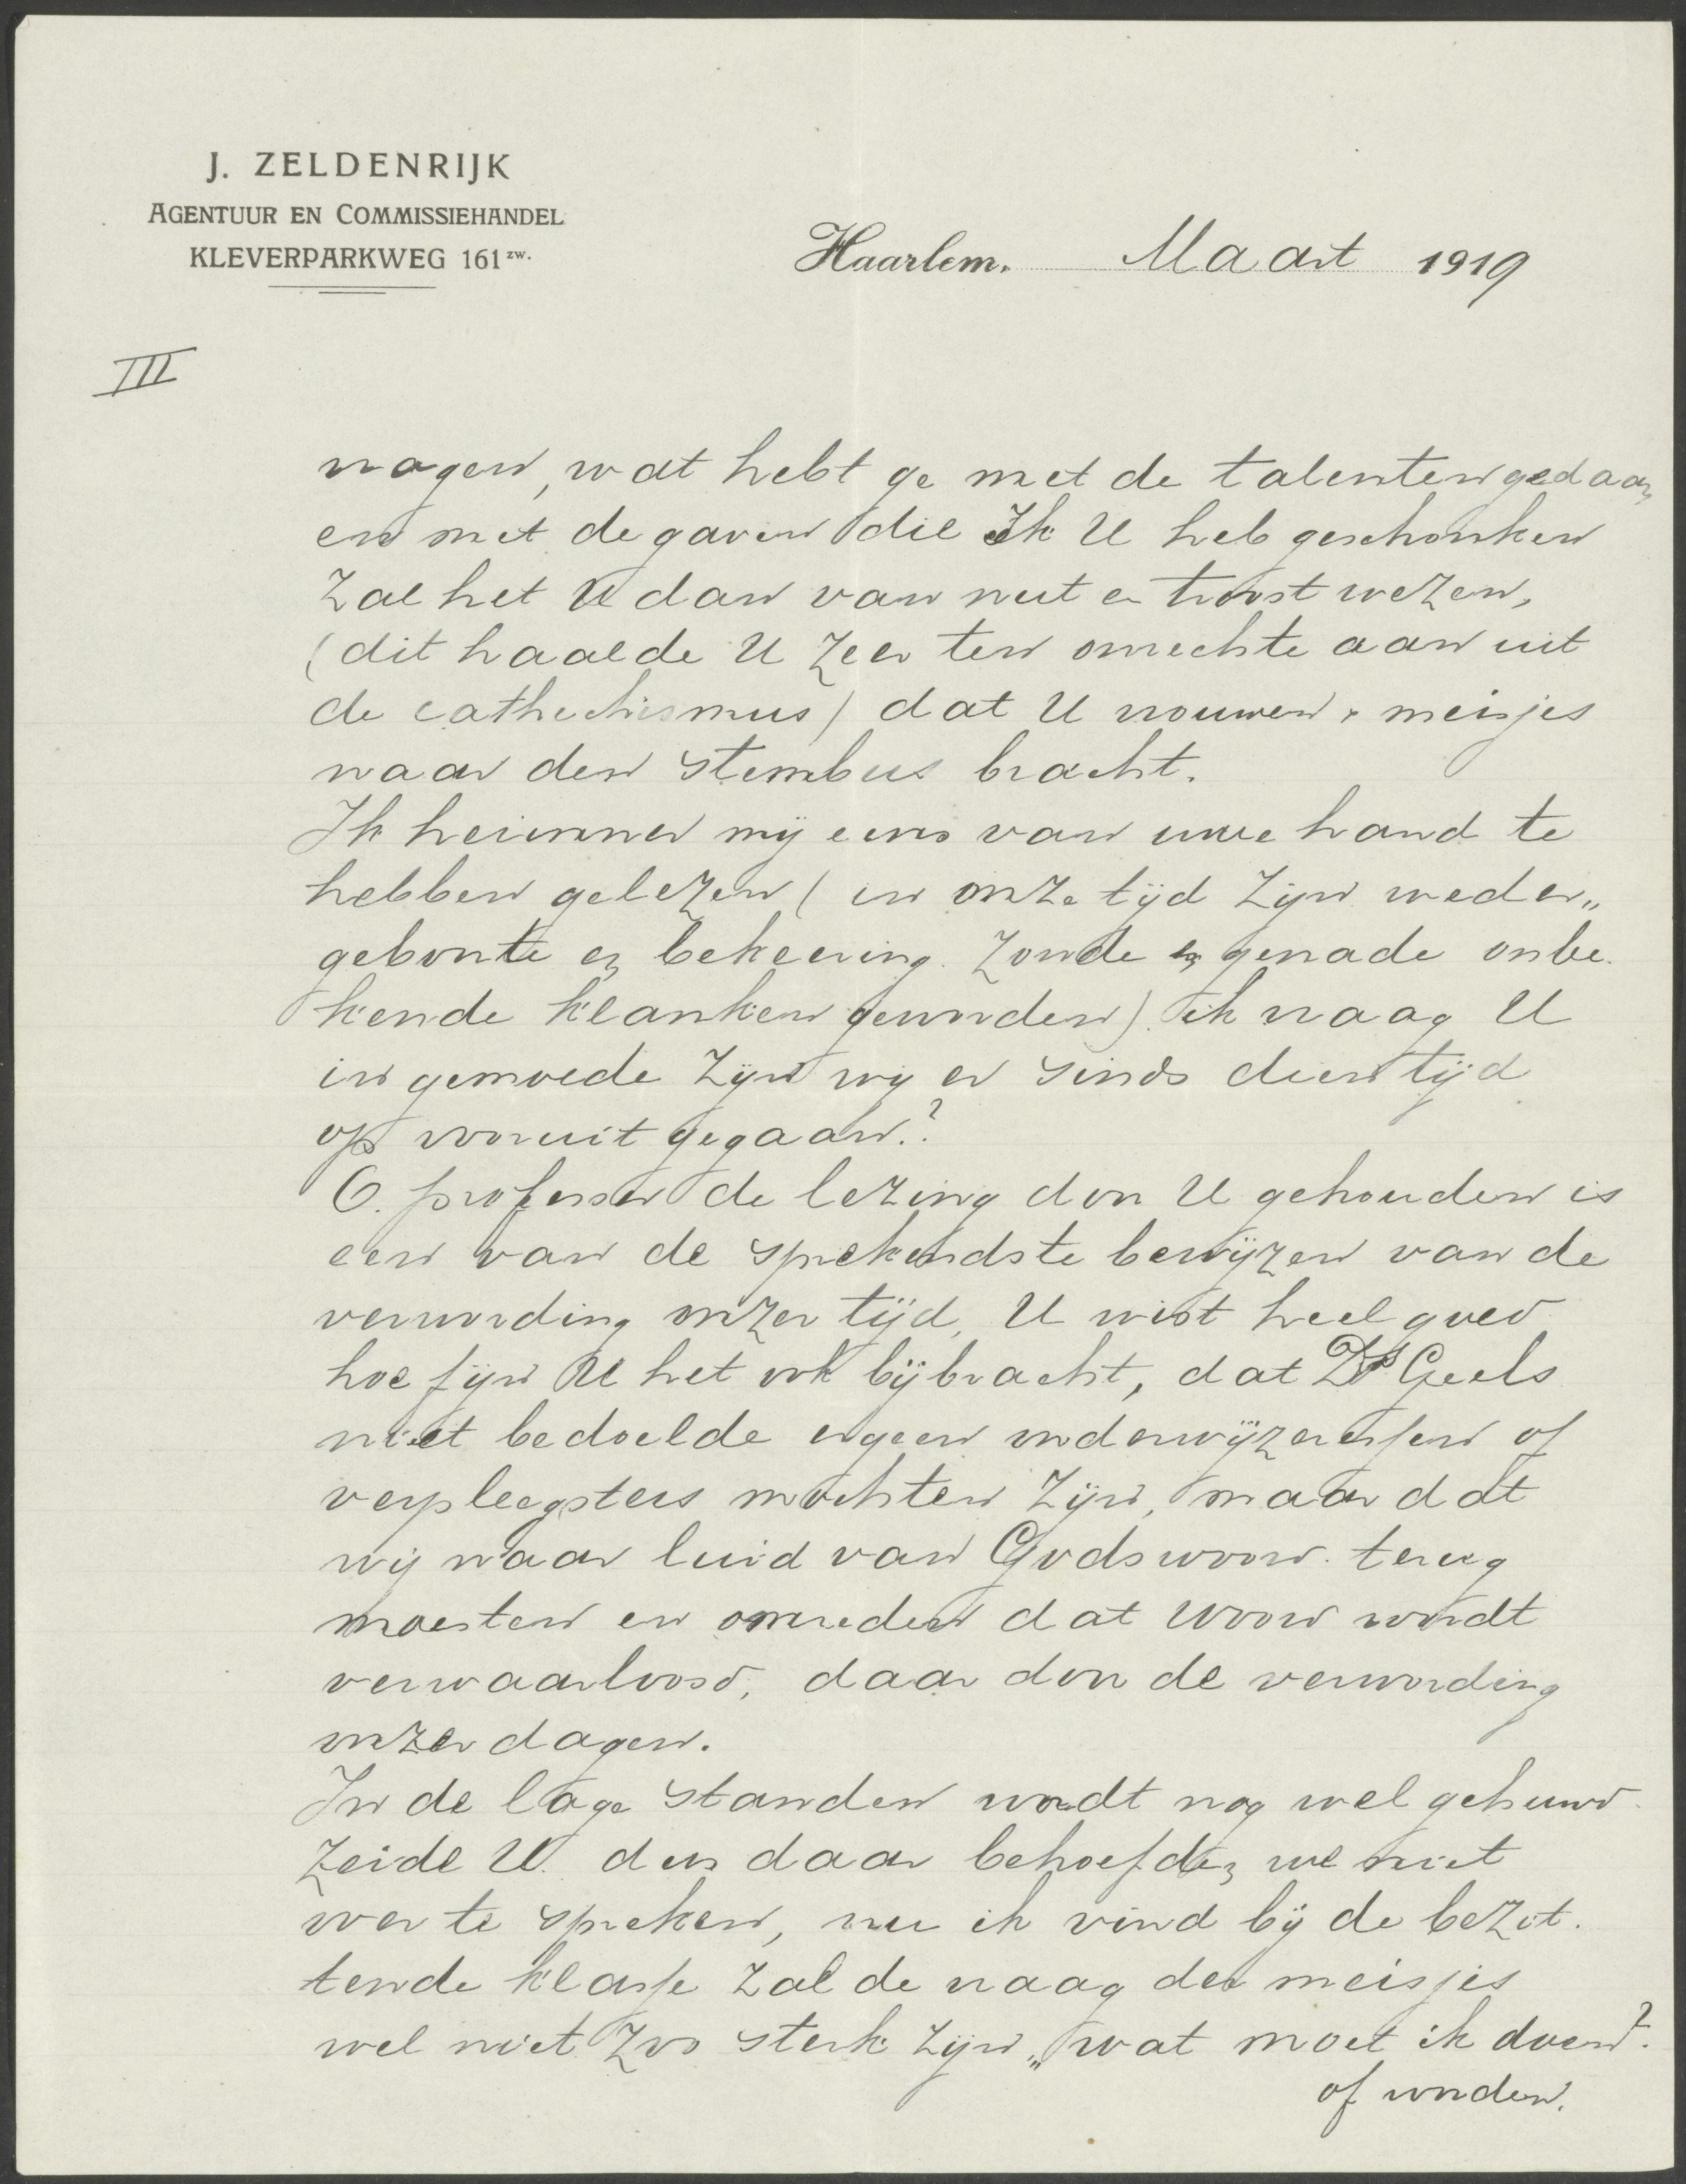 J. ZELDENRIJK
AGENTUUR EN COMMISSIEHANDEL
KLEVERPARKWEG 161 zw.
Haarlem. Maart 1919
III
vragen, wat hebt ge met de talenten gedaan,
en met de gaven die Ik U heb geschonken
Zal het U dan van nut en troost wezen,
(dit haalde U zeer ten onrechte aan uit
de cathechismus) dat U vrouwen & meisjes
naar den stembus bracht.
Ik herinner mij eens van uwe hand te
hebben gelezen (in onze tijd zijn weder„
geboorte en bekeering. Zonde en genade onbe.
kende klanken geworden). ik vraag U
in gemoede zijn wij er sinds dien tijd
op vooruit gegaan.?
O. professor de lezing door U gehouden is
een van de sprekendste bewijzen van de
verwording onzer tijd, U wist heel goed
hoe fijn U het ook bijbracht, dat Ds Geels
niet bedoelde er geen onderwijzeressen of
verpleegsters mochten zijn, maar dat
wij naar luid van Gods woord. terug
moesten en omreden dat woord wordt
verwaarloosd, daar door de verwording
onzer dagen.
In de lage standen wordt nog wel gehuwd.
Zeide U. dus daar behoefden we niet
over te spreken, nu ik vind bij de bezit.
tende klasse zal de vraag der meisjes
wel niet zoo sterk zijn „wat moet ik doen?
of worden.